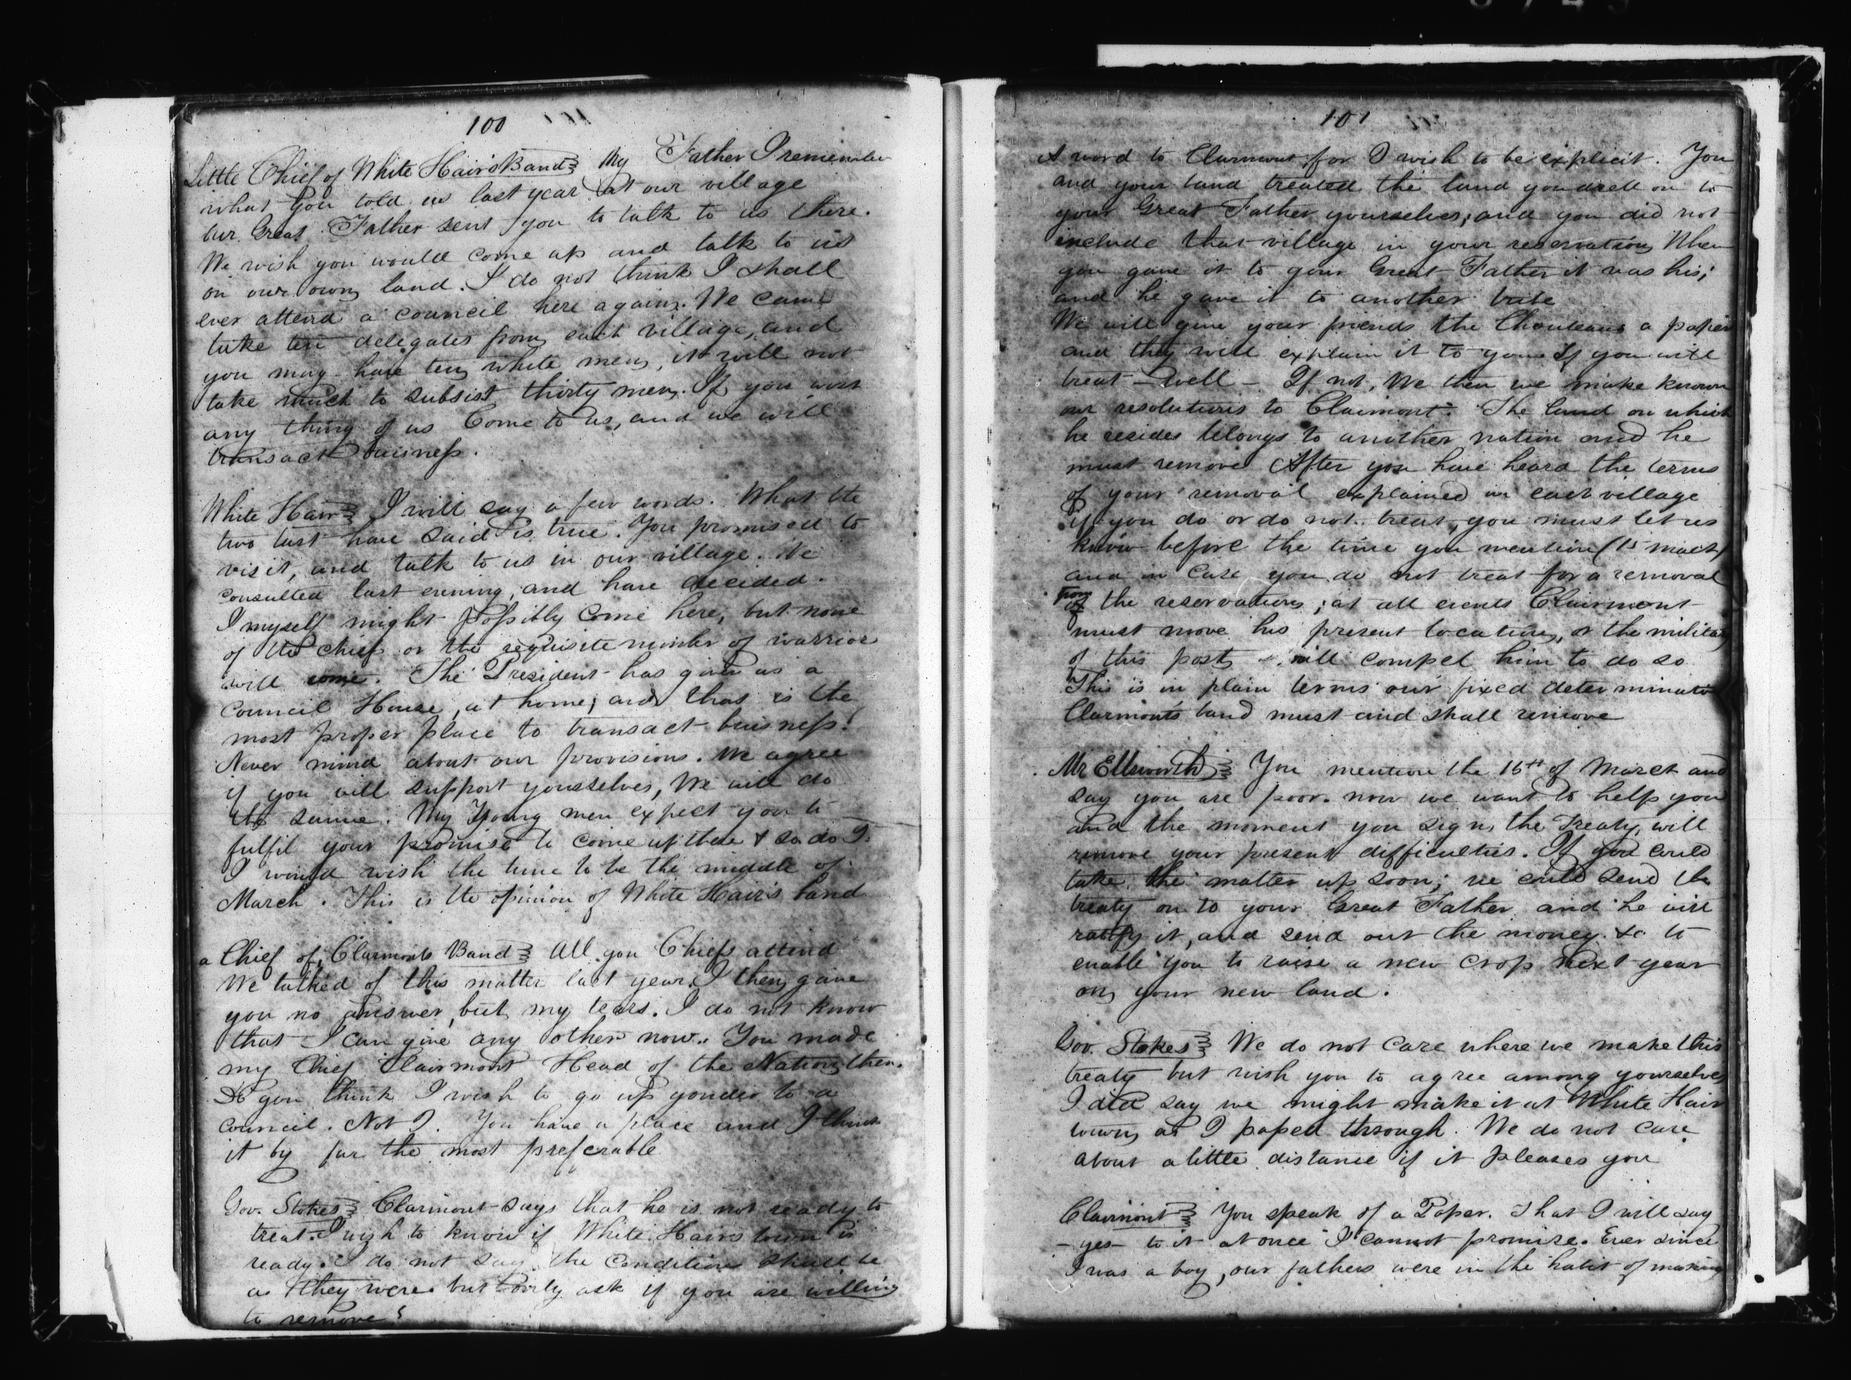 100
Little Chief of White Hair's Band My Father I remember
what you told us last year at our village
Our Great Father sent you to talk to us there.
We wish you would come up and talk to us
on our own land. I do not think I shall
ever attend a council here again. We came
take ten delegates from each village, and
you may have ten white men, it will not
take much to subsist thirty men. If you wish
any thing of us Come to us, and we will
transact buisness.
White Hair I will say a few words. What the
two last have said is true. You promised to
visit, and talk to us in our village. We
consulted last evening, and have decided.
I myself might possibly come here, but none
of the chiefs or the requisite number of warriors
will come. The President has given us a
Council House, at home; and that is the
most proper place to transact buisness!
Never mind about our provisions. We agree
if you will support yourselves, We will do
the same. My Young men expect you to
fulfil your promise to come up there & so do I.
I would wish the time to be the middle of
March. This is the opinion of White Hair's band
a Chief of Clarmonts Band All you Chiefs attend
We talked of this matter last year. I then gave
you no answer, but my tears. I do not know
that I can give any other now. You made
my Chief Clairmont Head of the Nation then.
Do you think I wish to go up yonder to a
council. Not I. You have a place and I think
it by far the most preferable
Gov. Stokes Clarmont says that he is not ready to
treat. I wish to know if White Hairs town is
ready. I do not say the conditions shall be
as they were but only ask if you are willing
to remove?
101
A word to Clarmont, for I wish to be explicit. You
and your band treated the land you dwell on to
your Great Father yourselves; and you did not
include that village in your reservation, When
you gave it to your Great Father it was his;
and he gave it to another tribe
We will give your friends the Chouteaus a paper
and they will explain it to you. If you will
treat — well — If not, We then we make known
our resolutions to Clairmont. The land on which
he resides belongs to another nation and he
must remove. After you have heard the terms
of your removal explained in each village
if you do or do not treat, you must let us
know before the time you mention (15 March)
and in case you do not treat for a removal
from the reservation; at all events Clairmont
must move his present location, or the military
of this post will compel him to do so.
This is in plain terms our fixed determination
Clarmonts band must and shall remove
Mr Ellsworth You mention the 15th of March and
say you are poor. now we want to help you
and the moment you sign the Treaty, will
remove your present difficulties. If you could
take the matter up soon; we could send the
treaty on to your Great Father and he will
ratify it, and send out the money &c to
enable you to raise a new crop next year
on your new land.
Gov. Stokes We do not care where we make this
treaty but wish you to agree among yourselves
I did say we might make it at White Hair
town as I passed through. We do not care
about a little distance if it pleases you
Clairmont You speak of a Paper. That I will say
- yes - to it at once I cannot promise. Ever since
I was a boy, our fathers were in the habit of making